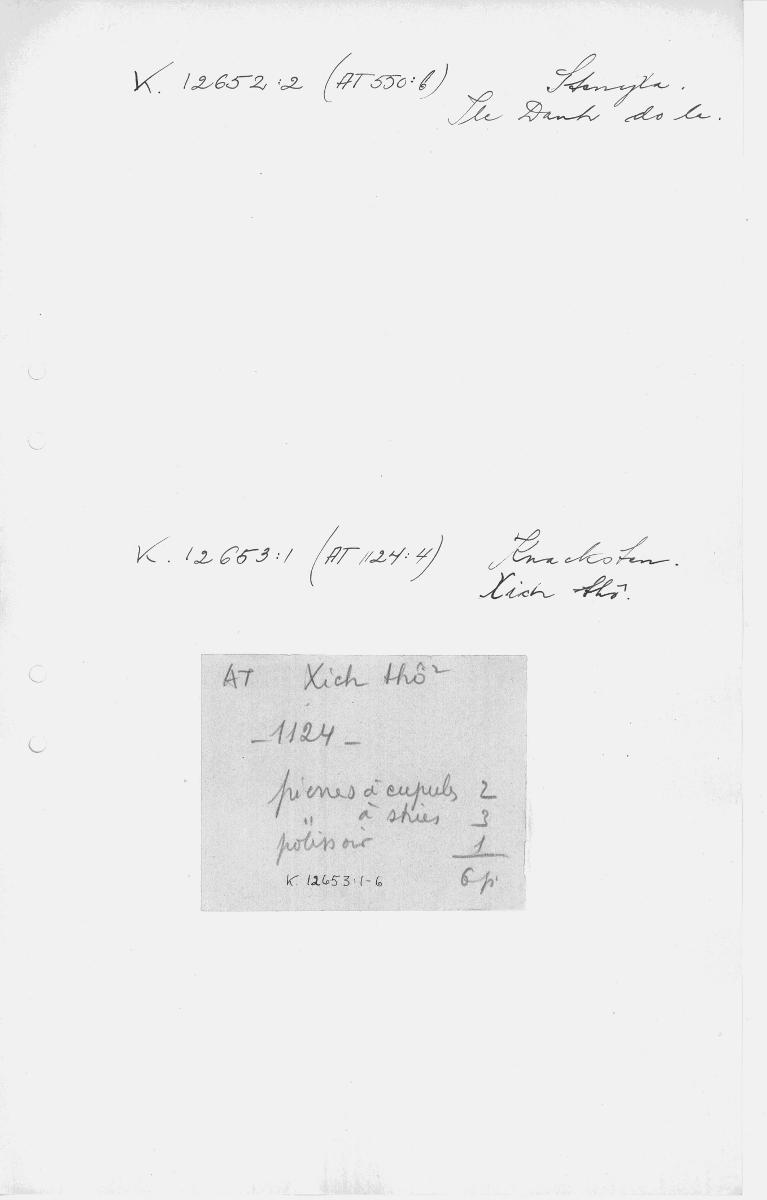 K. 12652:2 (AT 550:6) Stenyxa.
Ile Danh do la.
K. 12653:1 (AT 1124:4) Knacksten.
Xich thô.
AT Xich thô
— 1124 —
pierres à cupules 2
" à stries 3
polissoir 1
K. 12653:1-6 6 p.